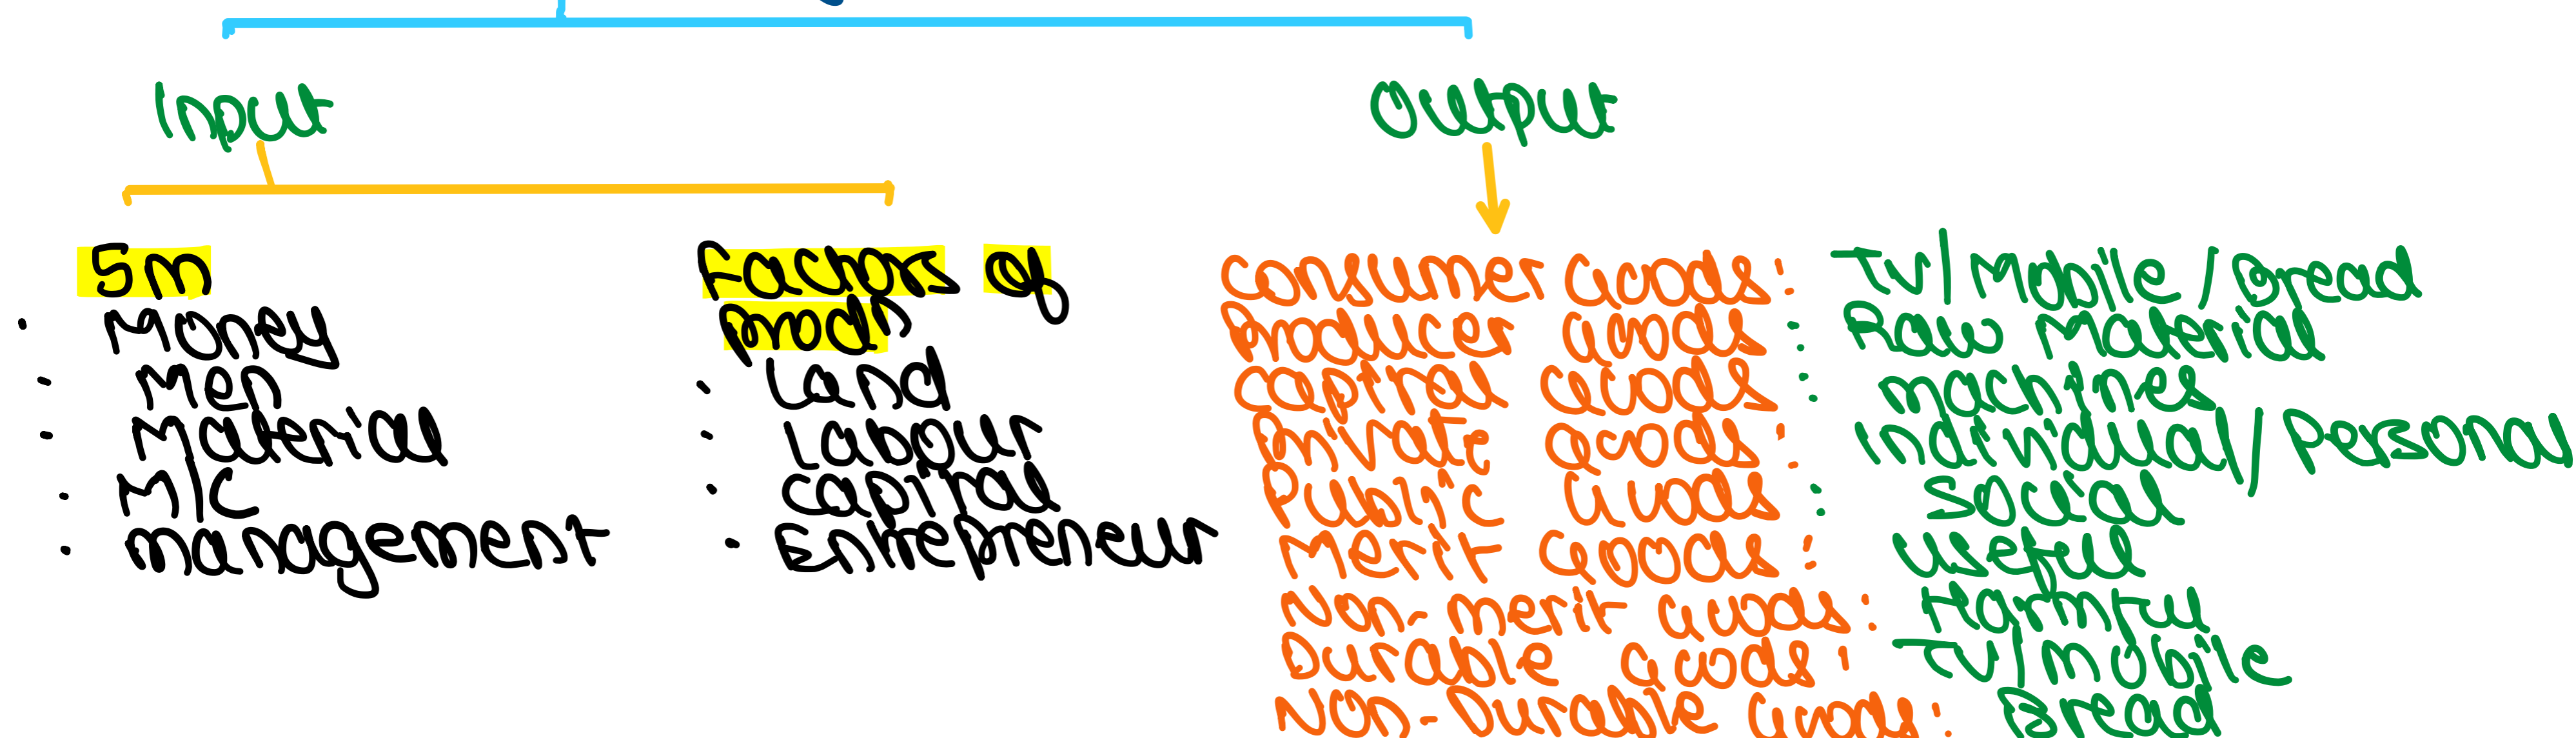 Input
Output
5M
Money
Men
Material
M/C
Management
Factors of
prodn
Land
Labour
Capital
Entrepreneur
Consumer Goods: TV/Mobile/Bread
Producer Goods: Raw Material
Capital Goods: machines
Private Goods: Individual/Personal
Public Goods: Social
Merit Goods: Useful
Non-merit Goods: Harmful
Durable Goods: TV/Mobile
Non-Durable Goods: Bread